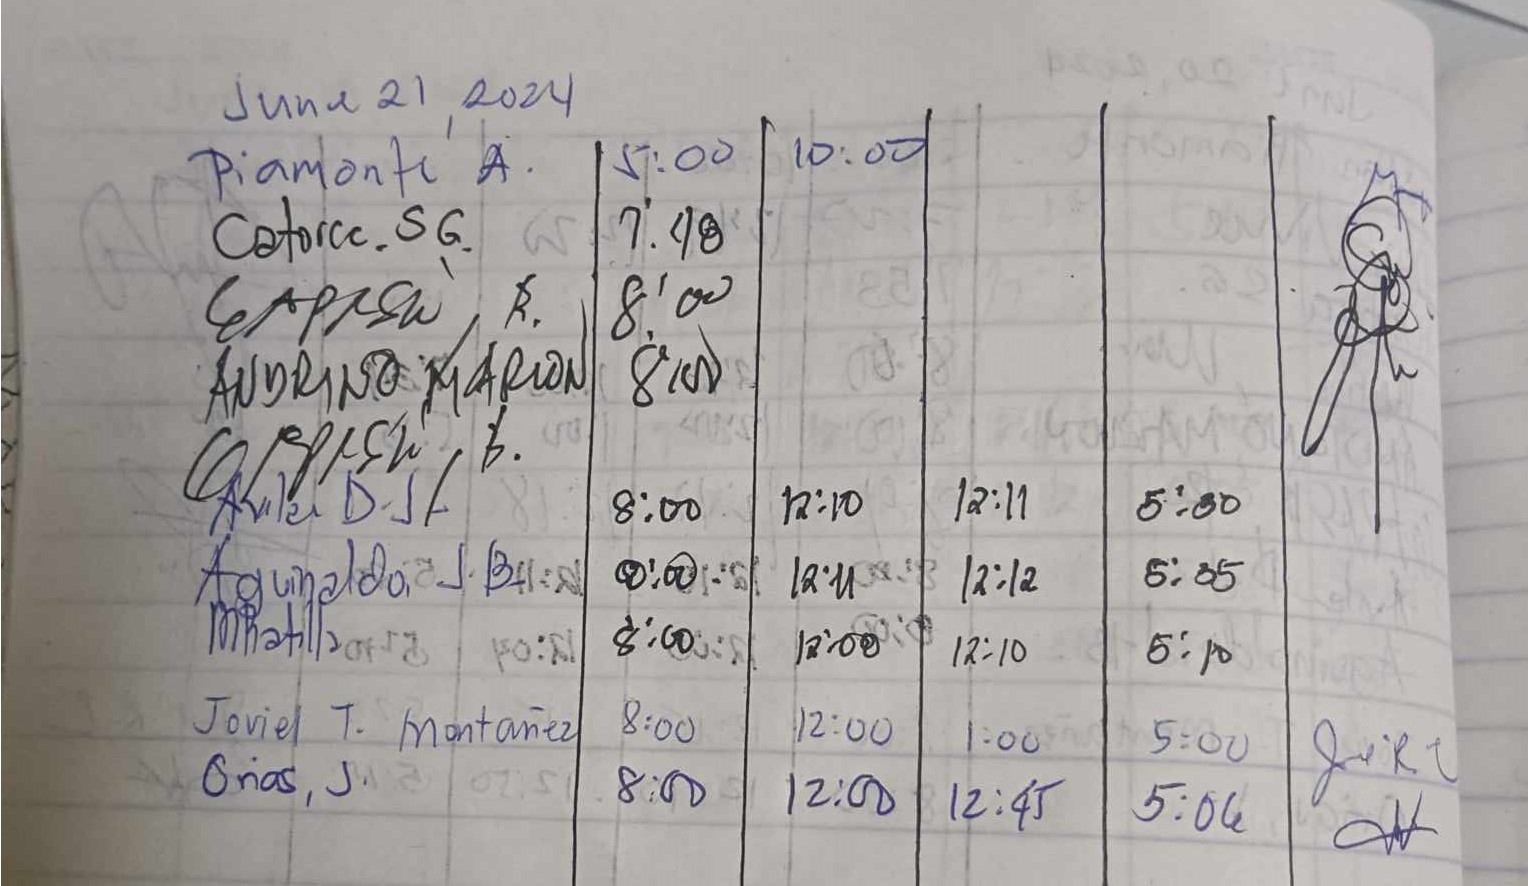 June 21, 2024
Piamonte A. 5:00 10:00
Catorce. SG. 7:48
R. 8:00
ANDRINO MARION 8:00
D.J. 8:00 12:10 12:11 5:30
Aguinaldo, J.B. 8:00 12:11 12:12 5:35
8:00 12:00 12:10 5:10
Joviel T. Montañez 8:00 12:00 1:00 5:00
Orias, J. 8:00 12:00 12:45 5:06